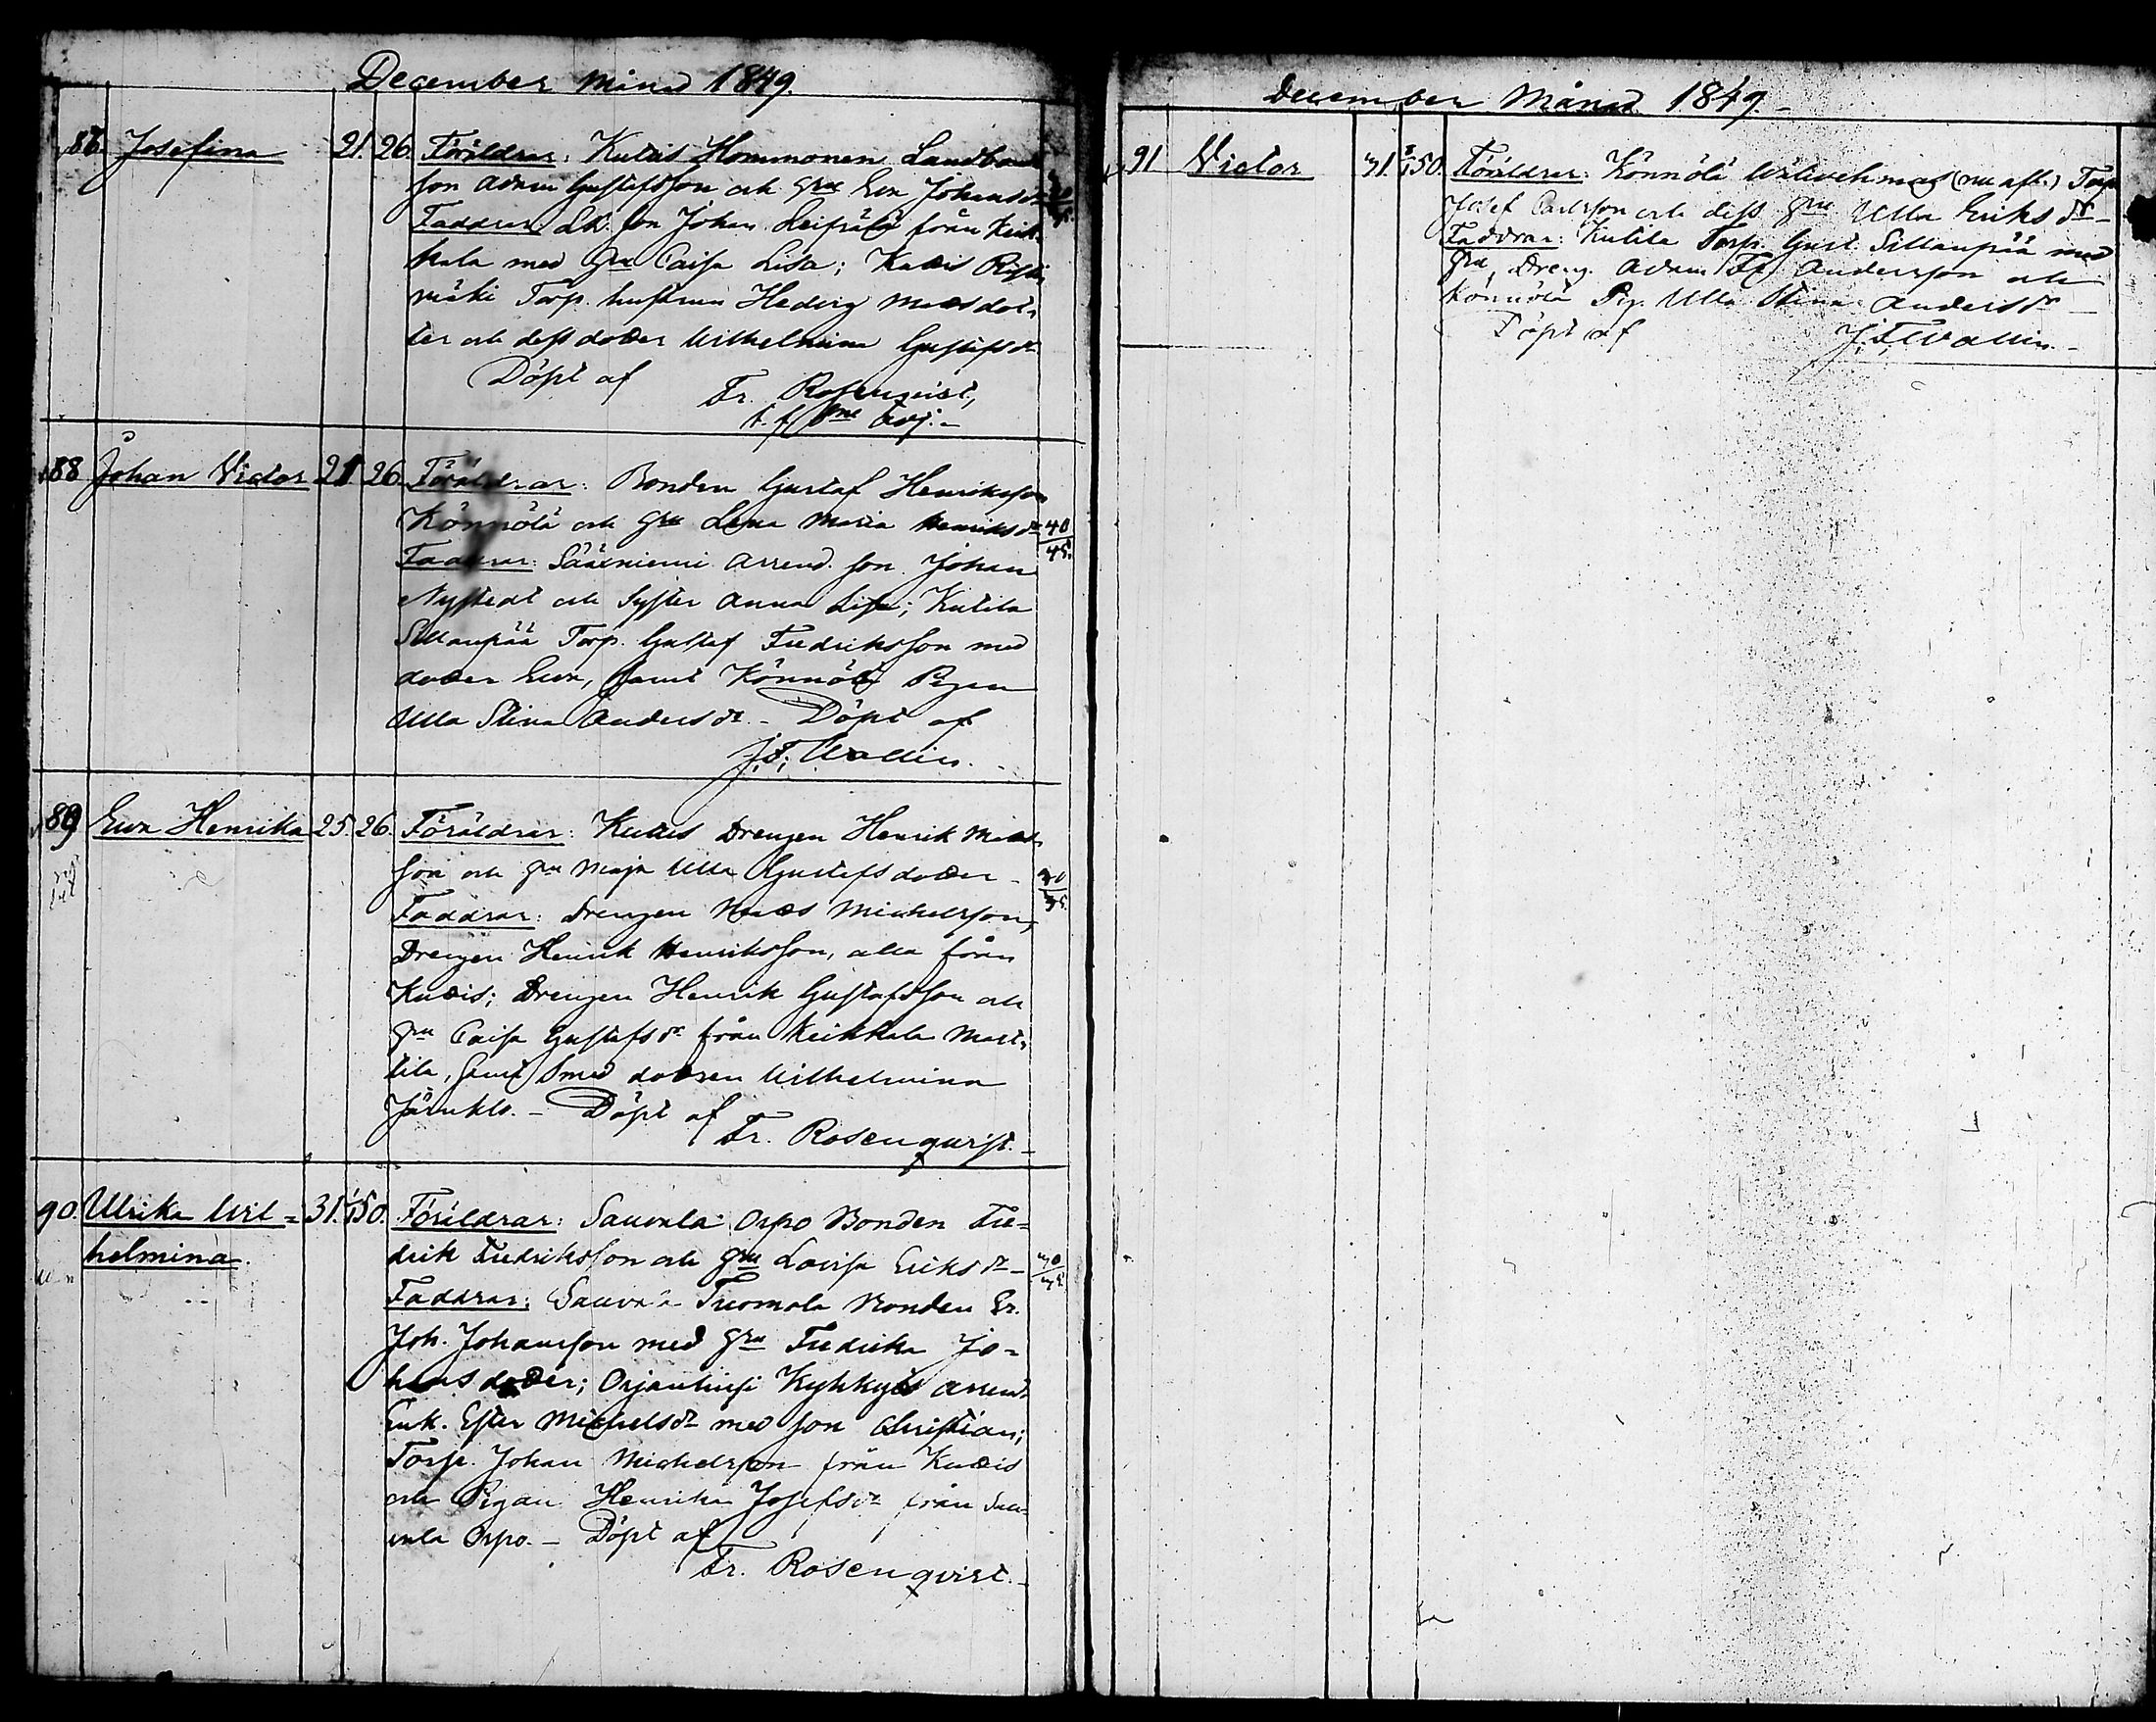 December Månad 1849.
Josefina 21. 26. Föräldrar: Kuttis Hommonen Landbonde
son Adam Gustafsson och hru Eva Johansdr
Faddrar: Lb. son Johan från Keik-
kala med hru Caisa Lisa; Kuttis Risti-
mäki Torp. hustrun Hedvig Matsdot-
ter och dess dotter Wilhelmina Gustafsdr
Döpt af
Fr. Rosenqvist,
88 Johan Victor 21. 26. Föräldrar: Bonden Gustaf Henriksson
Könnölä och hru Lena Maria Henriksdr 40
Faddrar: Sääxniemi Arrend. son Johan 45.
Nystedt och Syster Anna Lisa; Kutila
Sillanpää Torp. Gustaf Fredriksson med
dotter Eva, samt Könnölä Pigan
Ulla Stina Andersdr. - Döpt af
J. F. Wallin.
89 Eva Henrika 25. 26. Föräldrar: Kuttis Drengen Henrik Mats-
son och hru Maja Ulla Gustafsdotter -
Faddrar: Drengen Mats Michelsson,
Drengen Henrik Henriksson, alla från
Kuttis; Drengen Henrik Gustafsson och
hru Caisa Gustafsdr från Keikkala Mart-
tila, samt Smed dottren Wilhelmina
- Döpt af
Fr. Rosenqwist. -
90. Ulrika Wil- 31. 1/1 50. Föräldrar: Sauvala Orpo Bonden Fre-
helmina. drik Fredriksson och hru Lovisa Eriksdr -
Faddrar: Sauvala Tuomola Bonden Er.
Joh. Johansson med hru Fredrika Jo-
hansdotter; Orjanhirsi Kyhkyis Arrend.
Enk. Ester Michelsdr med son Christian;
Torp. Johan Michelsson från Kuttis
och Pigan Henrika Josefsdr från Sau-
vala Orpo. - Döpt af
Fr. Rosenqvist. -
December Månad 1849. -
91 Victor 31. 50. Föräldrar: Könnölä Torp.
Josef Carlsson och dess hru Ulla Eriksdr -
Faddrar: Kutila Torp. Gust. Sillanpää med
hru, Dreng. Adam Fr. Andersson och
Könnölä Pig. Ulla Stina Andersdr -
Döpt af J. F. Wallin. -